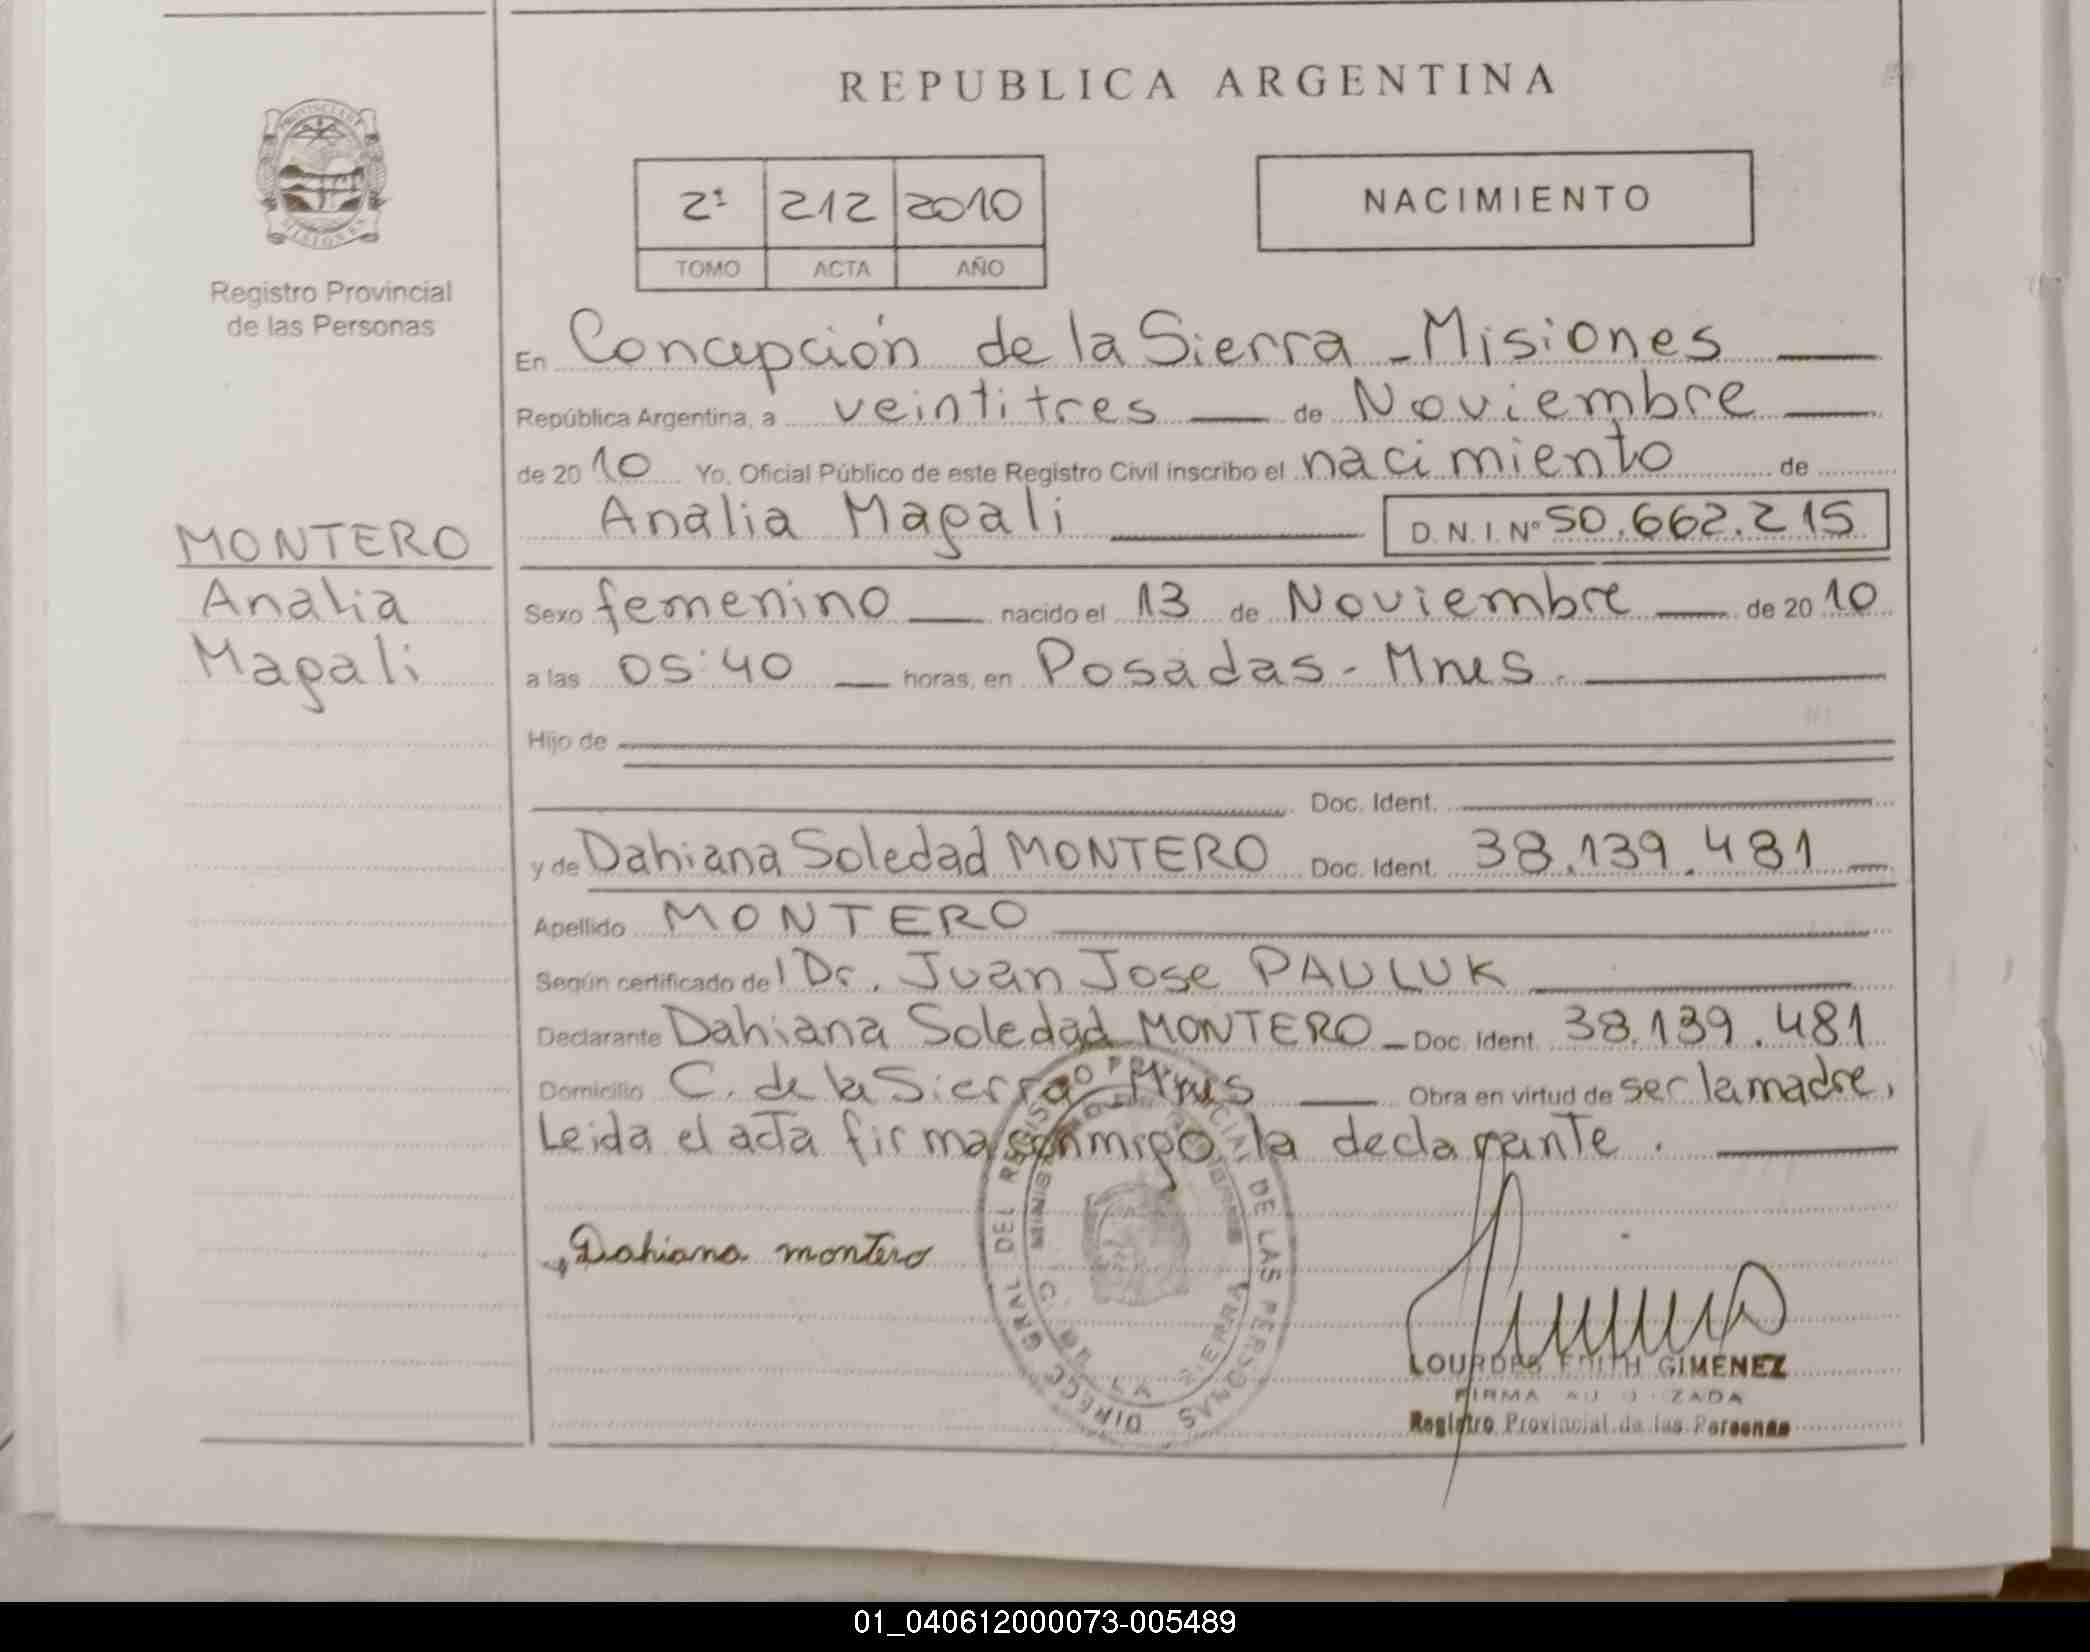 REPUBLICA ARGENTINA
PROVINCIA DE
MISIONES
Registro Provincial
de las Personas
2º 212 2010
TOMO ACTA AÑO
NACIMIENTO
En Concepción de la Sierra - Misiones
República Argentina, a veintitres de Noviembre
de 2010 Yo, Oficial Público de este Registro Civil inscribo el nacimiento de
Analia Magali D.N.I. Nº 50.662.215
MONTERO
Analia
Magali
Sexo femenino nacido el 13 de Noviembre de 2010
a las 05:40 horas, en Posadas - Mnes.
Hijo de
Doc. Ident.
y de Dahiana Soledad MONTERO Doc. Ident. 38.139.481
Apellido MONTERO
Según certificado del Dr. Juan Jose PAULUK
Declarante Dahiana Soledad MONTERO Doc. Ident. 38.139.481
Domicilio C. de la Sierra - Mnes Obra en virtud de ser la madre,
Leida el acta firma conmigo la declarante.
Dahiana montero
DIRECC GRAL DEL REGISTRO PROVINCIAL DE LAS PERSONAS
C. DE LA SIERRA
LOURDES EDITH GIMENEZ
FIRMA AUTORIZADA
Registro Provincial de las Personas
01_040612000073-005489